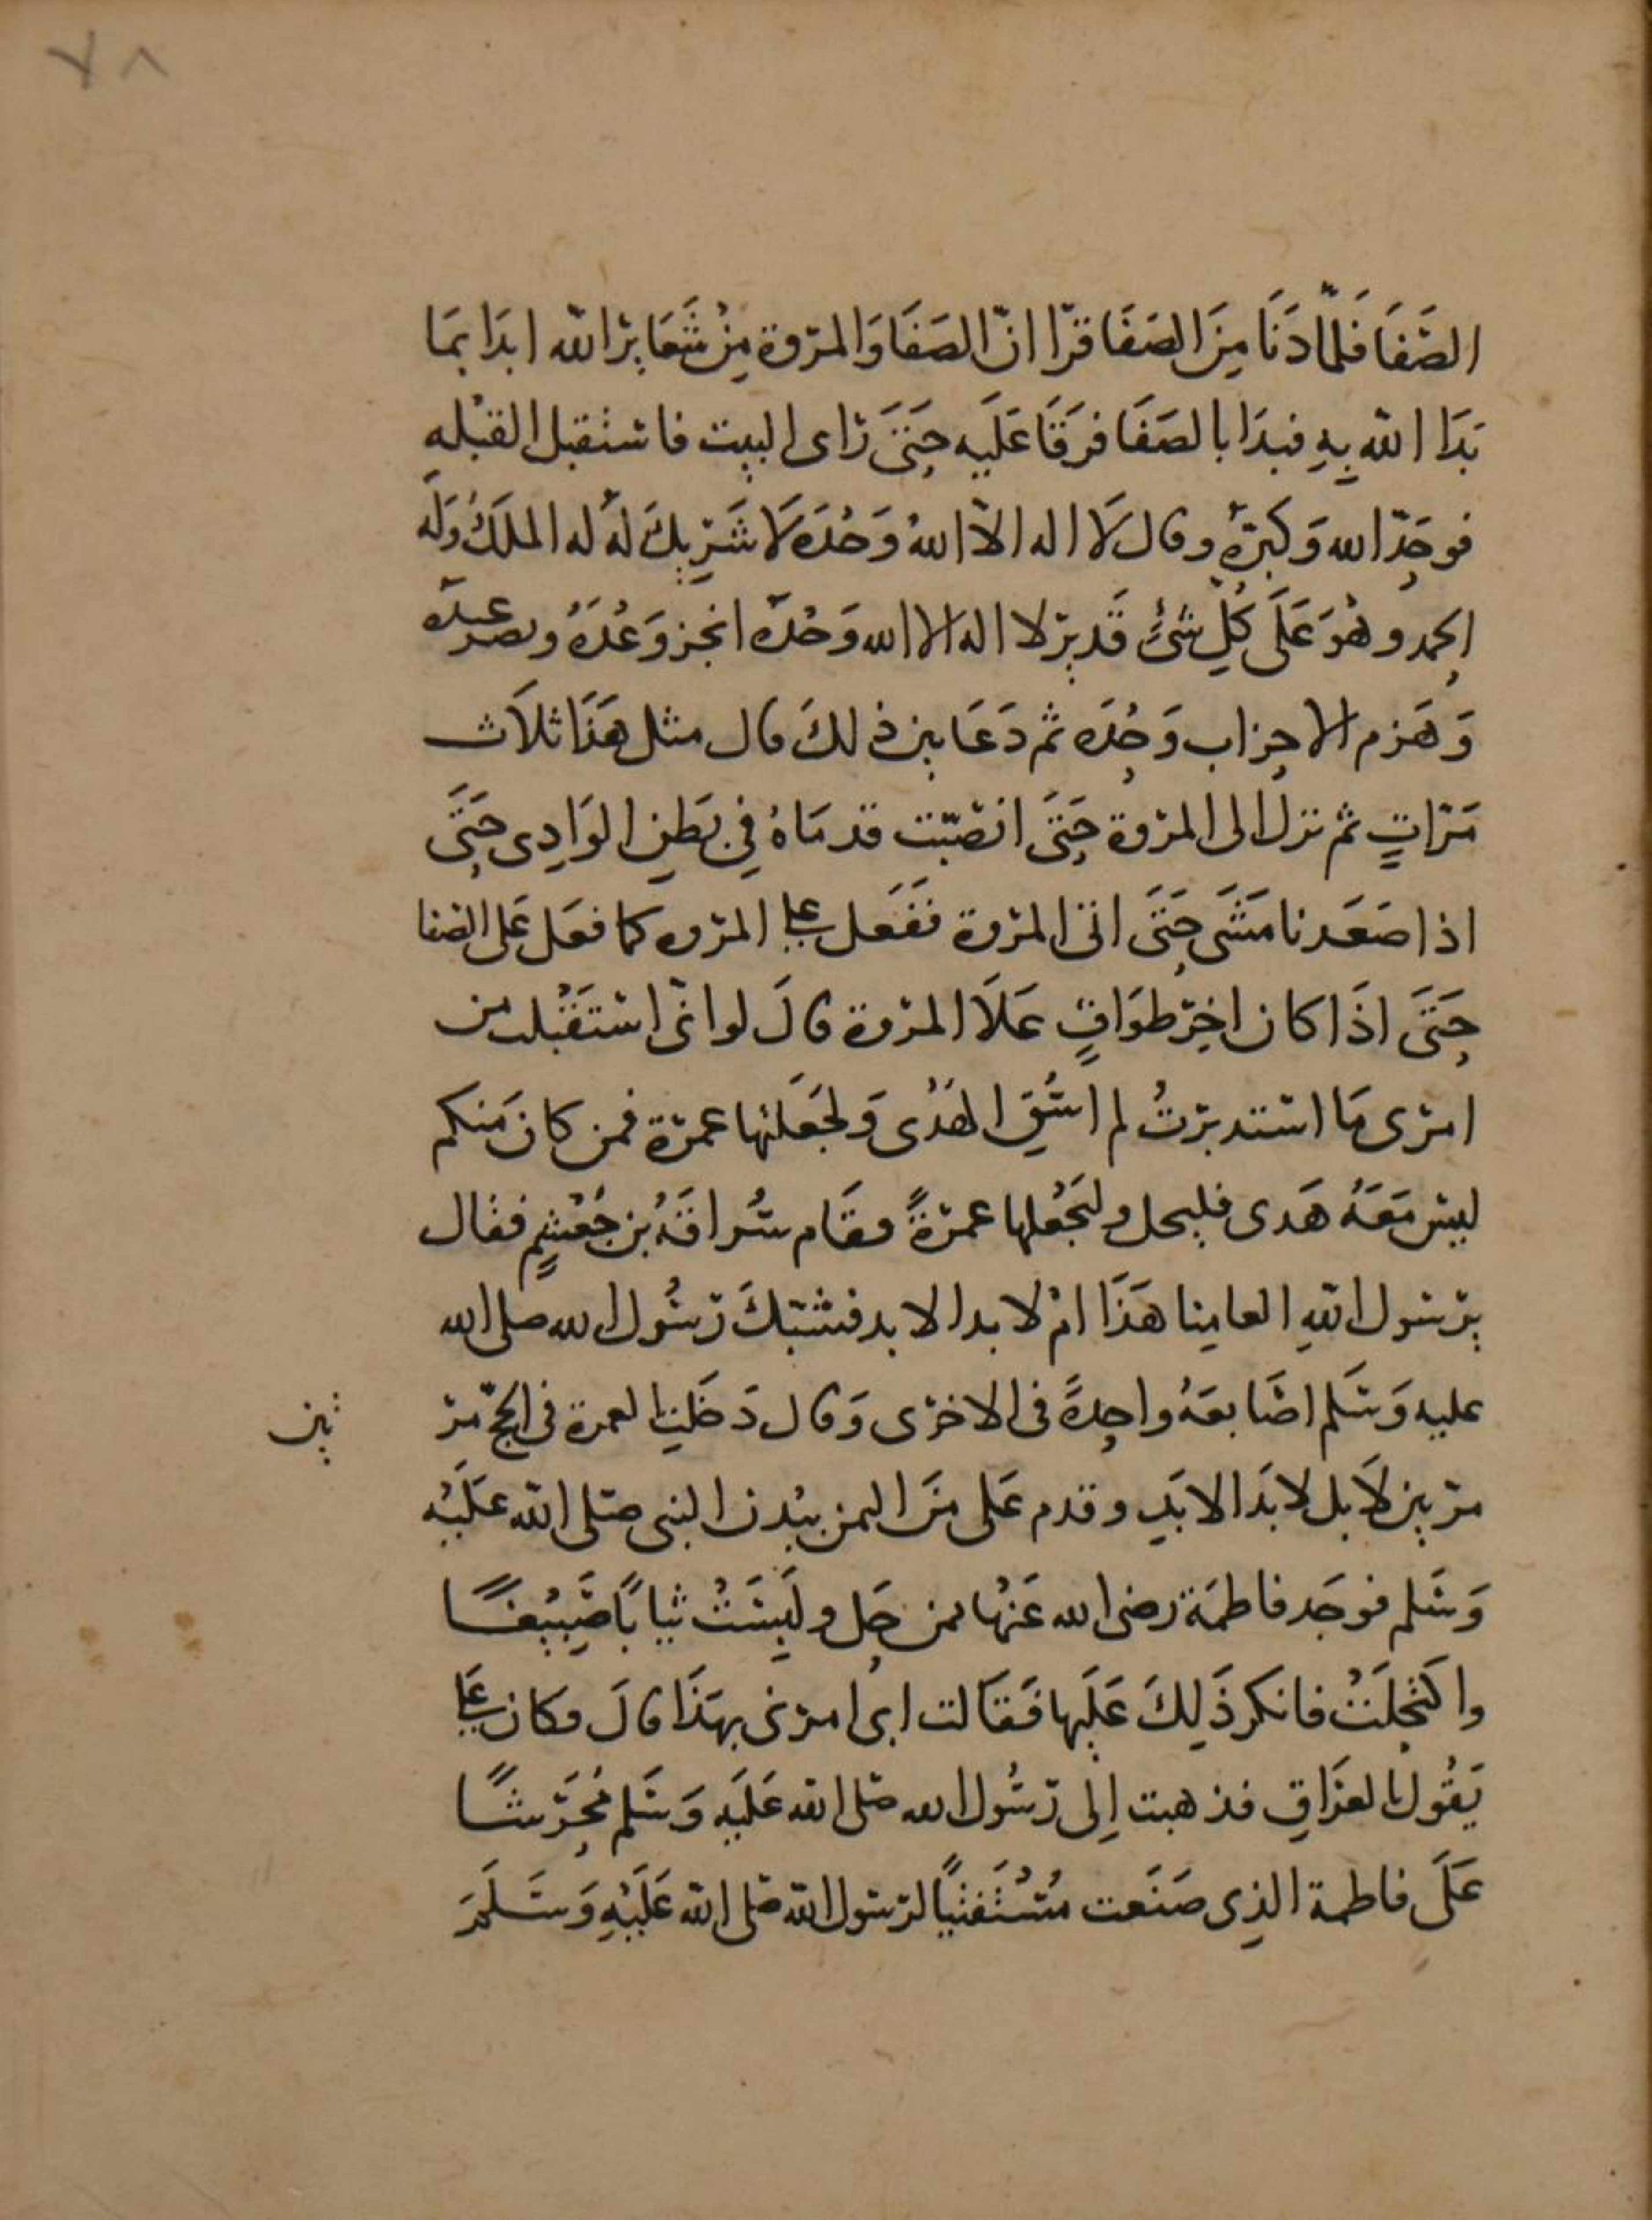 ٧٨
الصَّفَا فَلَمَّا دَنَا مِنَ الصَفَا قرَا انّ الصَفَا وَالمروة مِنْ شَعَايرَ الله ابدَا بمَا
بَدَا الله بِهِ فبدَا بالصَفَا فرَقَا عَلَيه حَتىَ راى البيت فاستقبل القبْلهِ
فوحَدّ الله وَكبرَهُ وقال لَا اله الاّ اللهُ وَحْدَه لَا شَرِيكَ لهَ له الملكُ وَلَه
الحمد وهُوَ عَلَى كُلِّ شَئٍ قَدير لا اله الا الله وَحْدَه انجز وَعْدَهُ ونصر عبدَه
وَهَزم الاحزاب وَحْدَه ثم دَعَا بين ذلكَ قال مثل هَذَا ثلاَث
مَرّاتٍ ثم نزل الى المروة حَتىَ انصَبّت قدمَاهُ فِي بَطنِ الوَادِى حَتَّى
اذا صَعَدنا مَشَى حَتىَ اتى المروة فَفَعَل على المروه كما فعَل عَلى الصَفا
حَتىَ اذَا كان اخِر طوَافٍ عَلَا المروة قالَ لو انّى استَقْبلت من
امرى مَا استدبرتُ لم اسُقِ الهَدْى وَلجَعَلتها عمرة فمن كان مَنكم
ليس مَعَهُ هَدى فليحل وليَجْعلها عمرةً وقام سُراقَهُ بن جُعْشمٍ فقال
يرسول اللهِ العامِنا هَذَا امْ لابد الابد فشبّكَ رَسُول الله صلى الله
عليه وَسَلم اصَابعَهُ واحِدةً فى الاخرى وَقال دَخَلتِ العمرة فى الحجّ مر
تين
مرتين لَا بل لابَد الابَدِ وقدم عَلى منَ اليمن ببُدن النبى صَلى الله عَلَيْه
وَسَلم فوجَد فاطمَة رضى الله عَنْها ممن حَل ولَبِسَتْ ثيابًا صَبِيْغًا
واكتحَلَتْ فانكر ذَلِكَ عَلَيها فَقَالت ابى امرنى بهَذَا قالَ فكان على
يَقُول بالعرَاقِ فذهبت اِلى رَسُول الله صَلى الله عَليَه وَسَلم مُحَرّشًا
عَلَى فاطمة الذِى صَنَعت مُسْتَفتيًا لرسول الله صَلى الله عَلَيْهِ وَسَلَمَ